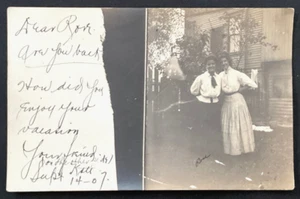 Dear Rose
Are you back
How did you
Enjoy your
vacation
Your friend
Kate
Sept 14-07.